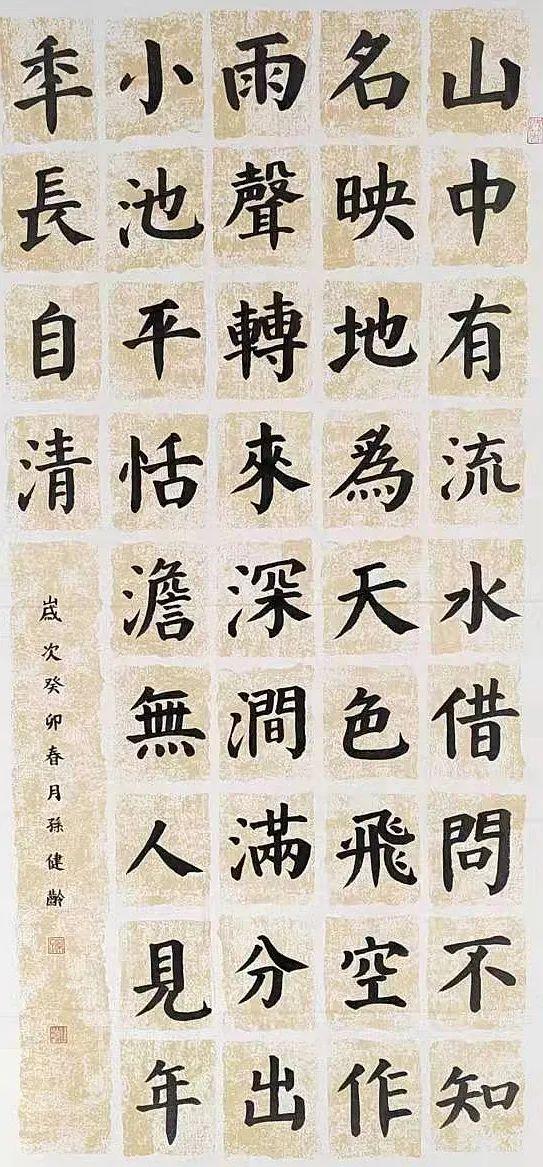 山中有流水借問不知
名映地為天色飛空作
雨聲轉來深澗滿分出
小池平恬澹無人見年
年長自清
歲次癸卯春月孫健齡